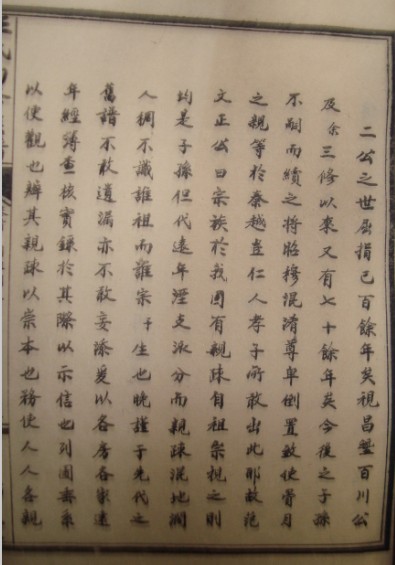 二公之世屈指已百餘年矣視昌黎百川公
及余三修以來又有七十餘年矣今後之子孫
不嗣而續之將昭穆混淆尊卑倒置致使骨肉
之親等於秦越豈仁人孝子所敢出此耶故范
文正公曰宗族於我固有親疎自祖宗視之則
均是子孫但代遠年湮支派分而親疎混地濶
人稠不識誰祖而誰宗予生也晚謹于先代之
舊譜不敢遺漏亦不敢妄添爰以各房各家遠
年經簿查核實錄於其際以示信也列圖書系
以便觀也辨其親疎以崇本也務使人人各親